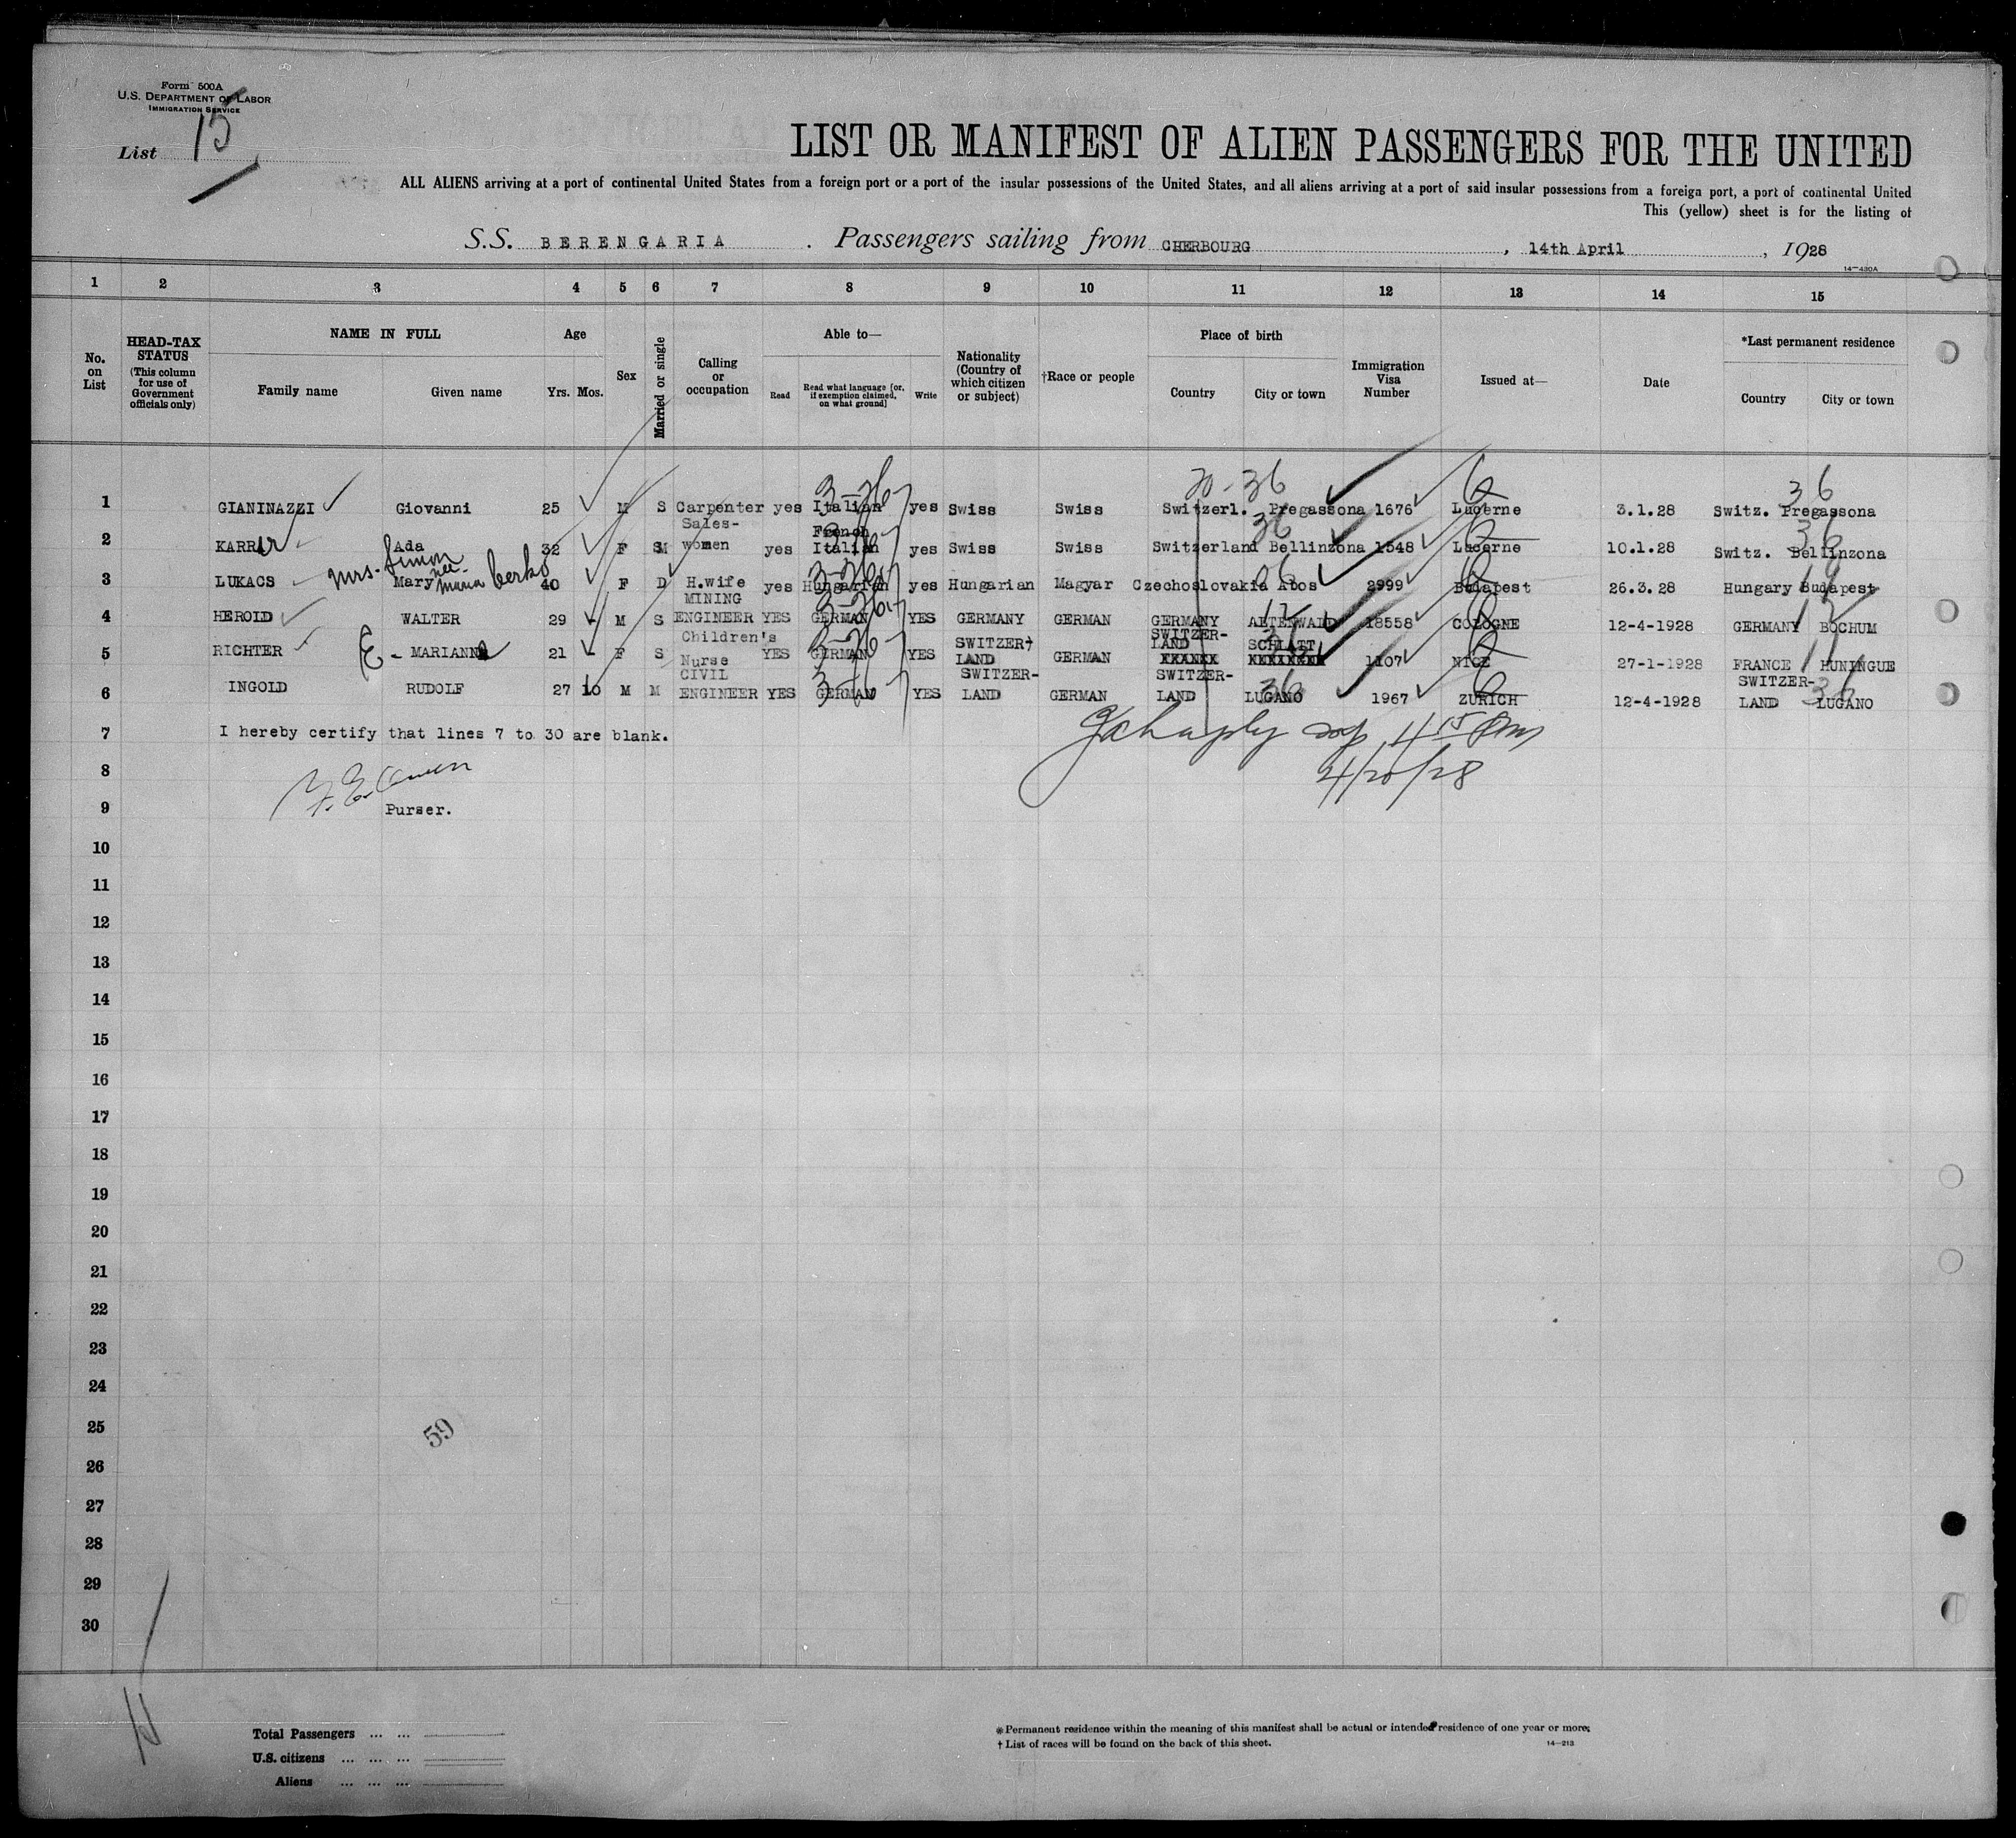 Form 500A
U.S. DEPARTMENT OF LABOR
IMMIGRATION SERVICE
List 15
LIST OR MANIFEST OF ALIEN PASSENGERS FOR THE UNITED
ALL ALIENS arriving at a port of continental United States from a foreign port or a port of the insular possessions of the United States, and all aliens arriving at a port of said insular possessions from a foreign port, a port of continental United
This (yellow) sheet is for the listing of
S.S. BERENGARIA . Passengers sailing from CHERBOURG , 14th April , 1928
14—430A
1 2 3 4 5 6 7 8 9 10 11 12 13 14 15
No. on List
HEAD-TAX STATUS (This column for use of Government officials only)
NAME IN FULL
Family name Given name
Age
Yrs. Mos.
Sex
Married or single
Calling or occupation
Able to—
Read Read what language [or, if exemption claimed, on what ground] Write
Nationality (Country of which citizen or subject)
†Race or people
Place of birth
Country City or town
Immigration Visa Number
Issued at—
Date
*Last permanent residence
Country City or town
20-36 36
1 GIANINAZZI Giovanni 25 M S Carpenter yes Italian yes Swiss Swiss Switzerl. Pregassona 1676 Lucerne 3.1.28 Switz. Pregassona
2 KARRER Ada 32 F M Sales-women yes French Italian yes Swiss Swiss Switzerland Bellinzona 1548 Lucerne 10.1.28 Switz. Bellinzona
mrs. Simon nee Maria Cerko
3 LUKACS Mary 40 F D H.wife yes Hungarian yes Hungarian Magyar Czechoslovakia Abos 2999 Budapest 26.3.28 Hungary Budapest
4 HEROLD WALTER 29 - M S MINING ENGINEER YES GERMAN YES GERMANY GERMAN GERMANY ALTENWALD 18558 COLOGNE 12-4-1928 GERMANY BOCHUM
5 RICHTER E - MARIANNE 21 - F S Children's Nurse YES GERMAN YES SWITZER-LAND GERMAN SWITZER-LAND SCHLATT 1107 NICE 27-1-1928 FRANCE HUNINGUE
6 INGOLD RUDOLF 27 10 M M CIVIL ENGINEER YES GERMAN YES SWITZER-LAND GERMAN SWITZER-LAND LUGANO 1967 ZURICH 12-4-1928 SWITZER-LAND LUGANO
7 I hereby certify that lines 7 to 30 are blank.
8 4/20/28
9 Purser.
10
11
12
13
14
15
16
17
18
19
20
21
22
23
24
25
59
26
27
28
29
30
Total Passengers ... ...
U.S. citizens ... ... ...
Aliens ... ... ...
* Permanent residence within the meaning of this manifest shall be actual or intended residence of one year or more.
† List of races will be found on the back of this sheet.
14—213